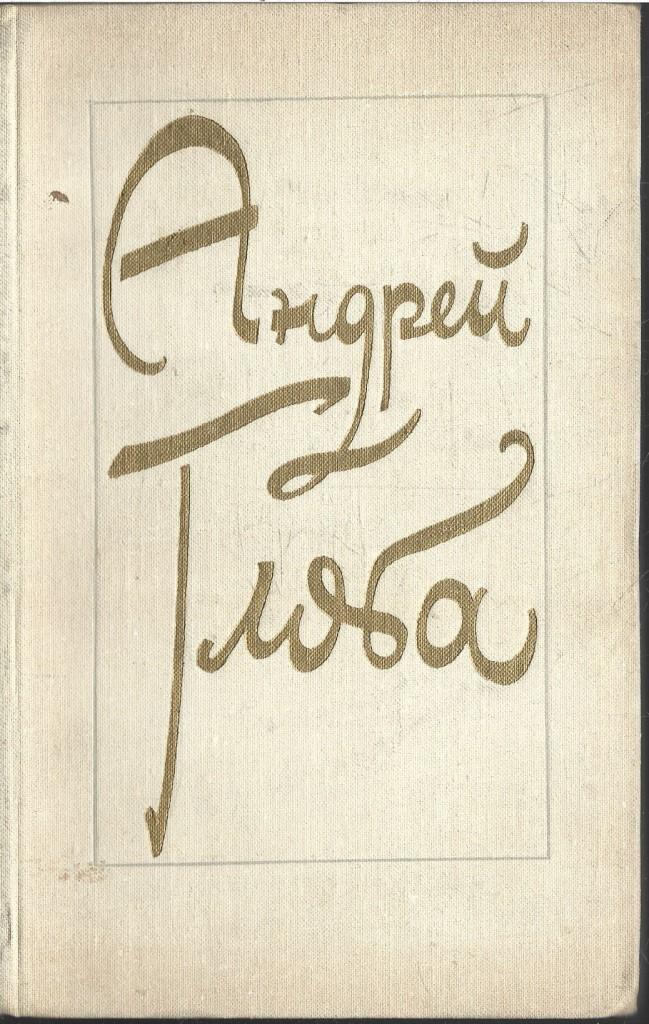 Андрей
Глоба